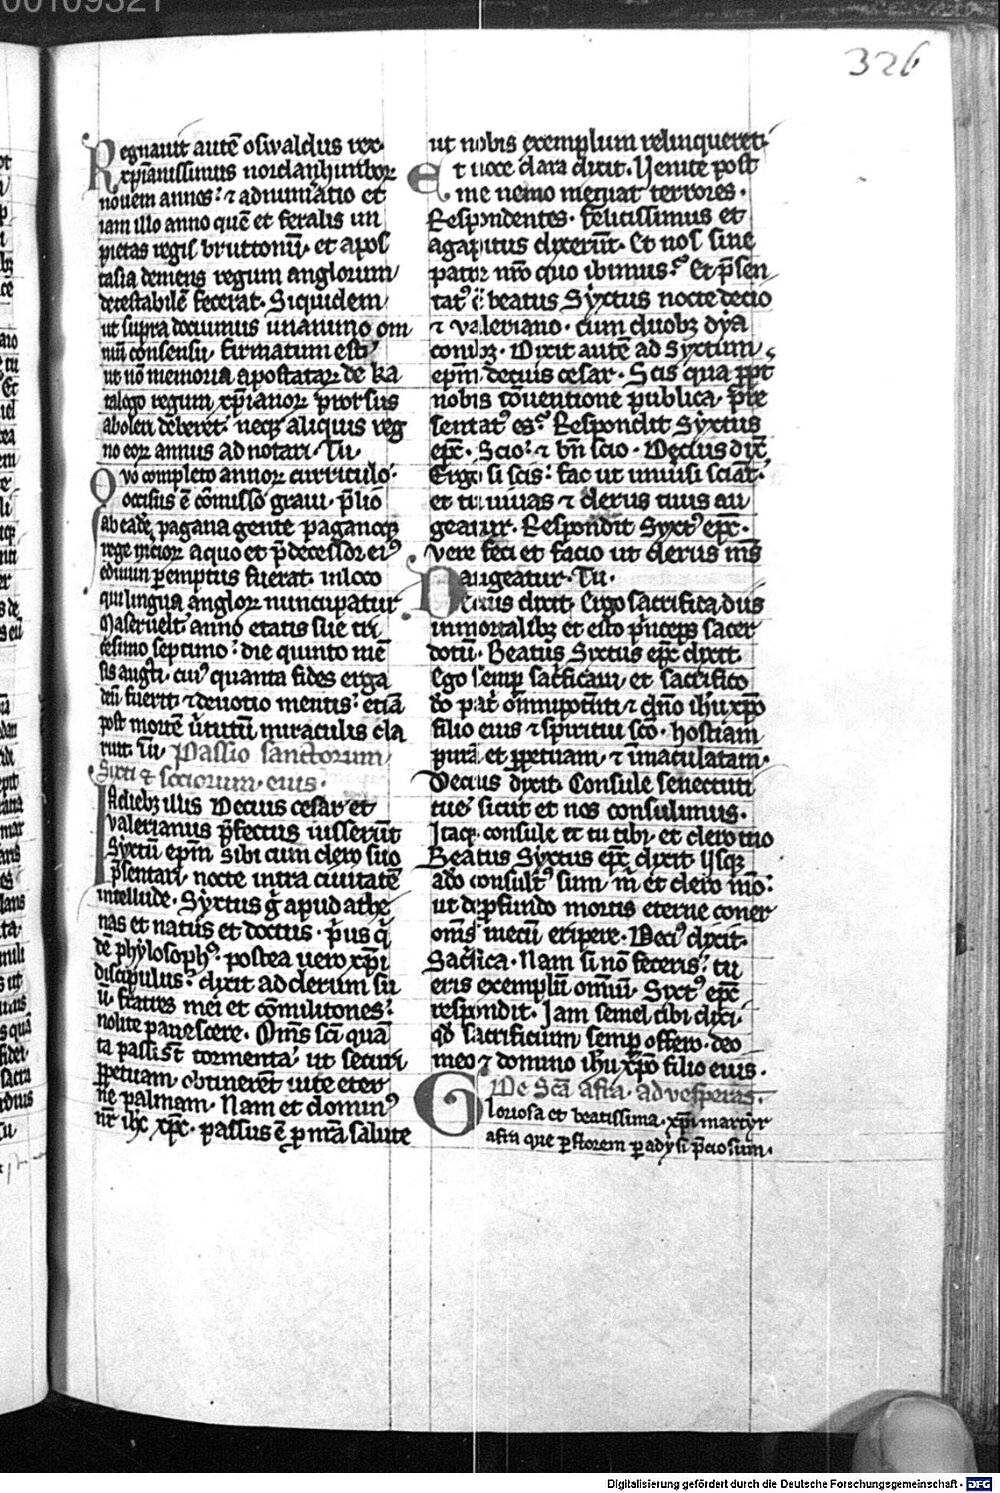 326
Regnauit autē oswaldus rex
xp̄ianissimus nordanhimbroꝝ
nouem annos: ⁊ adnum̄atio et
iam illo anno quē et feralis im
pietas regis bruttonū. et apos
tasia demens regum anglorum
detestabilē fecerat. Siquidem
ut supra docuimus unanimo om
niū consensu firmatum est:
ut nō memoria apostataꝝ de ka
talogo regum xp̄ianoꝝ prorsus
aboleri deberet. neqꝫ aliquis reg
no eoꝝ annus adnotari. Tu.
Quo completo annoꝝ curriculo:
occisus ē cōmisso graui p̄lio
ab eadē pagana gente paganoqꝫ
rege m̄cioꝝ a quo et p̄decessor ei⁹
eduuin peremptus fuerat. in loco
qui lingua angloꝝ nuncupatur
Maseruelt anno etatis sue tri
cesimo septimo: die quinto mē
sis augti. cui⁹ quanta fides erga
deū fuerit ⁊ deuotio mentis: etiā
post mortē v̓tutū miraculis cla
ruit. Tu. Passio sanctorum
Sixti ⁊ sociorum eius.
In diebꝫ illis Decius cesar et
valerianus p̄fectus iusserūt
Syxtū ep̄m sibi cum clero suo
p̄sentari nocte intra ciuitatē
intellude. Syxtus g̊ apud athe
nas et natus et doctus. p̓us q̇
dē phylosoph⁹. postea uero xp̄i
discipulus: dixit ad clerum su
ū. fratres mei et cōmilitones:
nolite pauescere. Om̄s sc̄i quā
ta passi st̄ tormenta: ut securi
ꝑpetuam obtinerēt uite eter
ne palmam. Nam et domin⁹
nr̄ ihc xp̄c. passus ē ꝓ nr̄a salute
ut nobis exemplum relinqueret.
Et uoce clara dixit. Venite post
me nemo metuat terrores.
Respondentes. felicissimus et
agapitus dixerūt. Et nos sine
patre nr̄o quo ibimus? Et p̄sen
tat⁹ ē beatus Syxtus nocte decio
⁊ valeriano. cum duobꝫ dya
conibꝫ. Dixit autē ad Syxtum
ep̄m decius cesar. Scis qua ꝓpt
nobis conuentione publica. pre
sentat⁹ es? Respondit Syxtus
ep̄c. Scio: ⁊ bn̄ scio. Decius dix̄.
Ergo si scis: fac ut uniuersi sciāt.
et tu uiuas ⁊ clerus tuus au
geatur. Respondit Syxt⁹ ep̄c.
vere feci et facio ut clerus m̄s
augeatur. Tu.
Decius dixit. Ergo sacrifica diis
inmortalibꝫ et esto p̓nceps sacer
dotū. Beatus Sixtus ep̄c dixit.
Ego semꝑ sac̓ficaui et sacrifico
dō pat̓ om̄nipotenti ⁊ dn̄o ihū xp̄o
filio eius ⁊ spiritui sc̄o. hostiam
purā et ꝑpetuam ⁊ īmaculatam.
Decius dixit. Consule senectuti
tue sicut et nos consulimus.
Itaqꝫ consule et tu tibi et clero tuo
Beatus Syxtus ep̄c dixit Usqꝫ
ado consult⁹ sum m̓ et clero m̄o:
ut de ꝓfundo mortis eterne coner
om̄s mecū eripere. Deci⁹ dixit.
Sac̓fica. Nam si nō feceris: tu
eris exemplū omniū. Syxt⁹ ep̄c
respondit. Iam semel tibi dixi.
qd̓ sacrificium semꝑ offero. deo
meo ⁊ domino ihū xp̄o filio eius.
De Scā afra. ad vesperas.
Gloriosa et beatissima. xp̄i martyr
afra que per storem paradysi p̄ciosum.
Digitalisierung gefördert durch die Deutsche Forschungsgemeinschaft - DFG